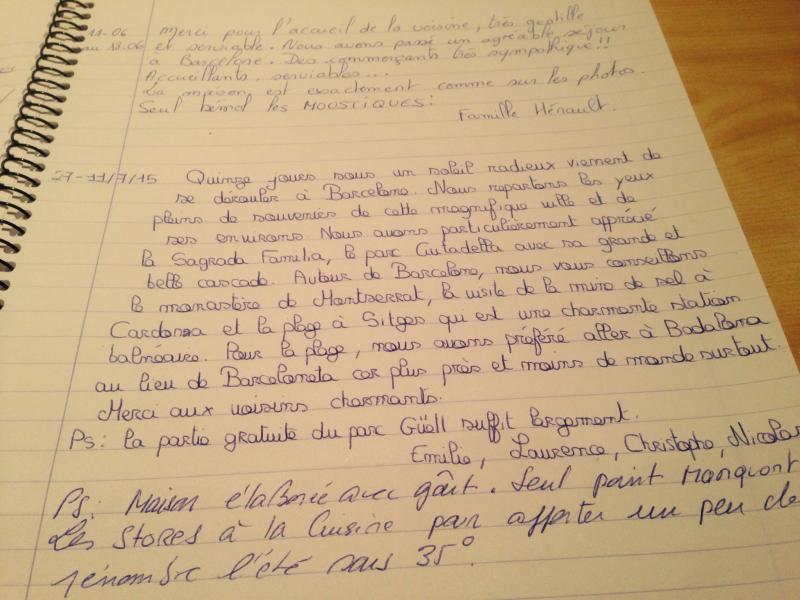 11-06 Merci pour l'accueil de la voisine, très gentille
au 18.06 et serviable. Nous avons passé un agréable séjour
à Barcelone. Des commerçants très sympathique!!
Accueillants, serviables...
La maison est exactement comme sur les photos.
Seul bémol les MOUSTIQUES:
Famille Hénault.
27-11/7/15 Quinze jours sous un soleil radieux viennent de
se dérouler à Barcelone. Nous repartons les yeux
pleins de souvenirs de cette magnifique ville et de
ses environs. Nous avons particulièrement apprécié
la Sagrada Familia, le parc Ciutadella avec sa grande et
belle cascade. Autour de Barcelone, nous vous conseillons
le monastère de Montserrat, la visite de la mine de sel à
Cardona et la plage à Sitges qui est une charmante station
balnéaire. Pour la plage, nous avons préféré aller à Badalona
au lieu de Barceloneta car plus près et moins de monde surtout.
Merci aux voisins charmants.
Ps: la partie gratuite du parc Güell suffit largement.
Emilie, Laurence, Christophe, Nicolas
Ps: Maison élaborée avec goût. Seul point Manquant
Les stores à la Cuisine pour apporter un peu de
pénombre l'été sous 35°.